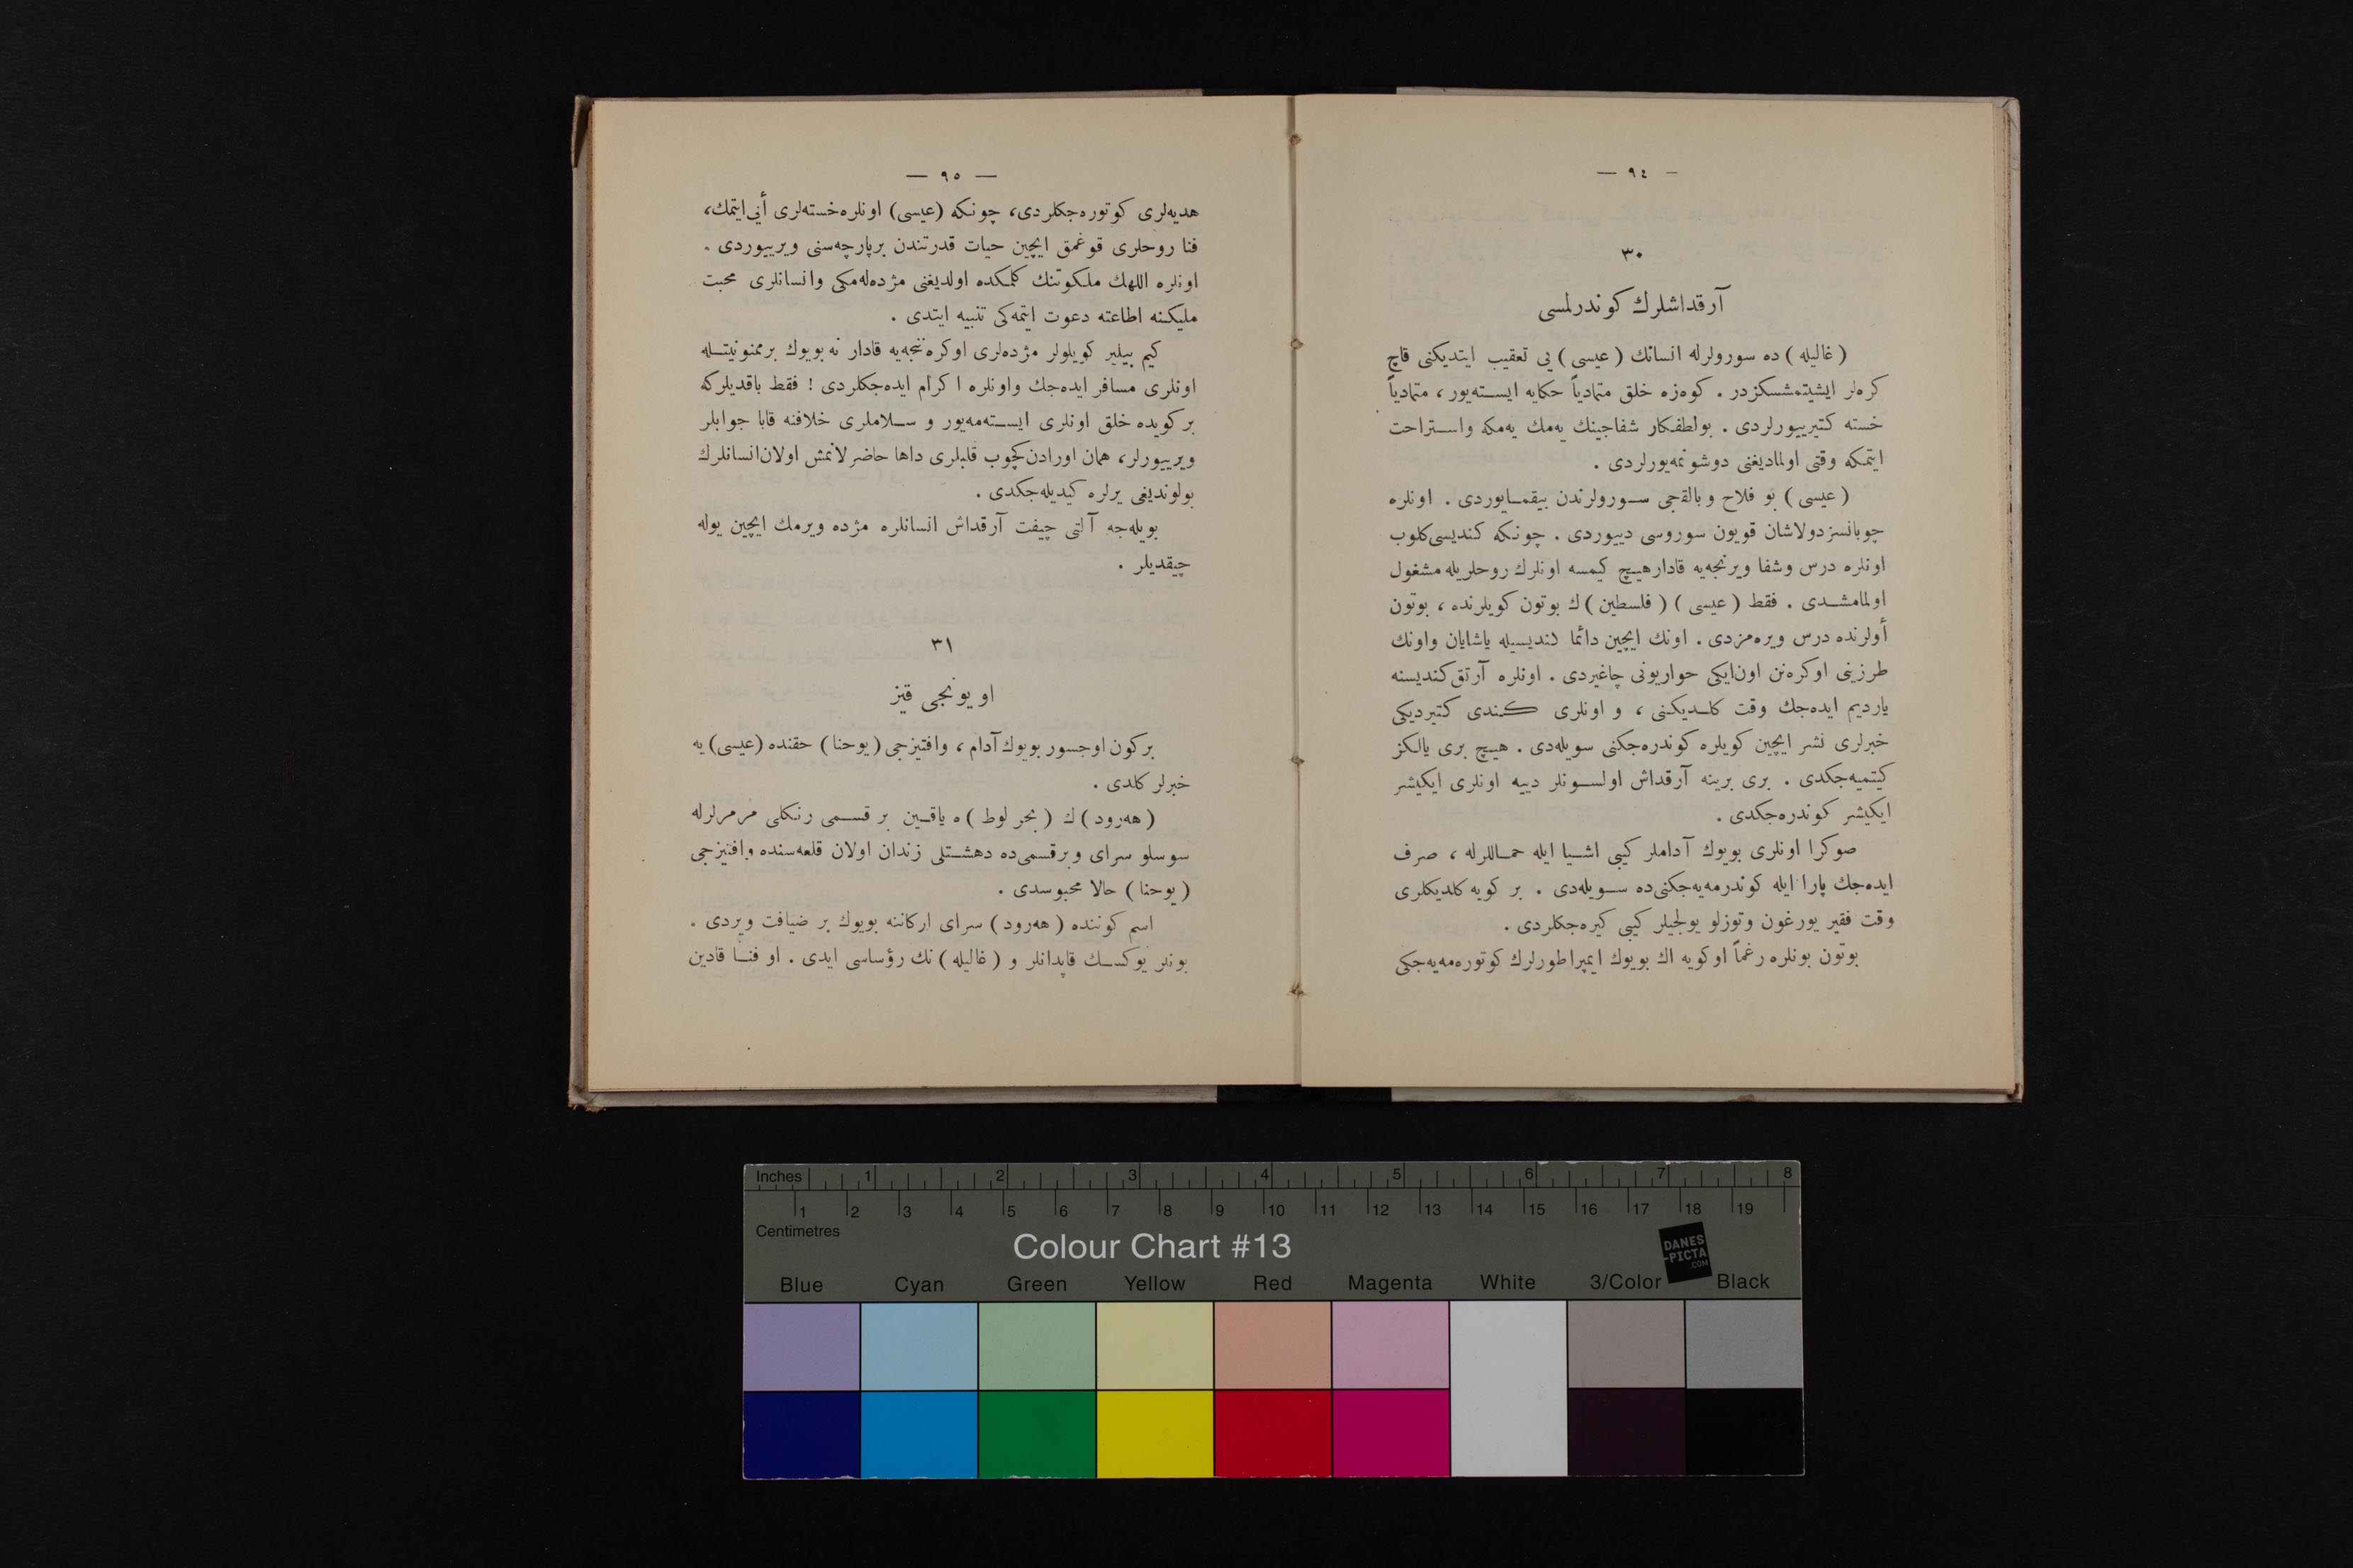 — ٩٤ —
٣٠
آرقداشلرك كوندرلمسی
(غالیله) ده سورولرله انسانك (عیسی) یی تعقیب ایتدیكنی قاچ
كره‌لر ایشیتمشسكزدر . كوه‌زه خلق متمادیاً حكایه ایسته‌یور ، متمادیاً
خسته كتیرییورلردی . بولطفكار شفاجینك یه‌مك یه‌مكه واستراحت
ایتمكه وقتی اولمادیغنی دوشونمه‌یورلردی .
(عیسی) بو فلاح وبالقجی سورولرندن بیقمایوردی . اونلره
چوبانسز دولاشان قویون سوروسی دییوردی . چونكه كندیسی كلوب
اونلره درس وشفا ویرنجه‌یه قادار هیچ كیمسه اونلرك روحلریله مشغول
اولمامشدی . فقط (عیسی) (فلسطین) ك بوتون كویلرنده ، بوتون
أولرنده درس ویره‌مزدی . اونك ایچین دائما كندیسیله یاشایان واونك
طرزینی اوكره‌نن اون‌ایكی حواریونی چاغیردی . اونلره آرتق كندیسنه
یاردیم ایده‌جك وقت كلدیكنی ، و اونلری كندی كتیردیكی
خبرلری نشر ایچین كویلره كوندره‌جكنی سویله‌دی . هیچ بری یالكز
كیتمیه‌جكدی . بری برینه آرقداش اولسونلر دییه اونلری ایكیشر
ایكیشر كوندره‌جكدی .
صوكرا اونلری بویوك آداملر كیبی اشیا ایله حماللرله ، صرف
ایده‌جك پارا ایله كوندرمه‌یه‌جكنی‌ده سویله‌دی . بر كویه كلدیكلری
وقت فقیر یورغون وتوزلو یولجیلر كیبی كیره‌جكلردی .
بوتون بونلره رغماً اوكویه اك بویوك ایمپراطورلرك كوتوره‌مه‌یه‌جكی
— ٩٥ —
هدیه‌لری كوتوره‌جكلردی، چونكه (عیسی) اونلره خسته‌لری أیی ایتمك،
فنا روحلری قوغمق ایچین حیات قدرتندن برپارچه‌سنی ویرییوردی .
اونلره اللهك ملكوتنك كلمكده اولدیغنی مژده‌له‌مكی وانسانلری محبت
ملیكنه اطاعته دعوت ایتمه‌كی تنبیه ایتدی .
كیم بیلیر كویلولر مژده‌لری اوكره‌ننجه‌یه قادار نه بویوك برممنونیتله
اونلری مسافر ایده‌جك واونلره اكرام ایده‌جكلردی ! فقط باقدیلركه
بر كویده خلق اونلری ایسته‌مه‌یور و سلاملری خلافنه قابا جوابلر
ویرییورلر، همان اورادن كچوب قلبلری داها حاضرلانمش اولان انسانلرك
بولوندیغی یرلره كیدیله‌جكدی .
بویله‌جه آلتی چیفت آرقداش انسانلره مژده ویرمك ایچین یوله
چیقدیلر .
٣١
اویونجی قیز
بركون اوجسور بویوك آدام ، وافتیزجی (یوحنا) حقنده (عیسی) یه
خبرلر كلدی .
(هه‌رود) ك (بحر لوط) ه یاقین بر قسمی رنكلی مرمرلرله
سوسلو سرای وبرقسمی‌ده دهشتلی زندان اولان قلعه‌سنده وافتیزجی
(یوحنا) حالا محبوسدی .
اسم كوننده (هه‌رود) سرای اركاننه بویوك بر ضیافت ویردی .
بونلر یوكسك قاپدانلر و (غالیله) نك رؤساسی ایدی . او فنا قادین
Inches 1 2 3 4 5 6 7 8
1 2 3 4 5 6 7 8 9 10 11 12 13 14 15 16 17 18 19
Centimetres
Colour Chart #13
DANES
-PICTA
.COM
Blue Cyan Green Yellow Red Magenta White 3/Color Black